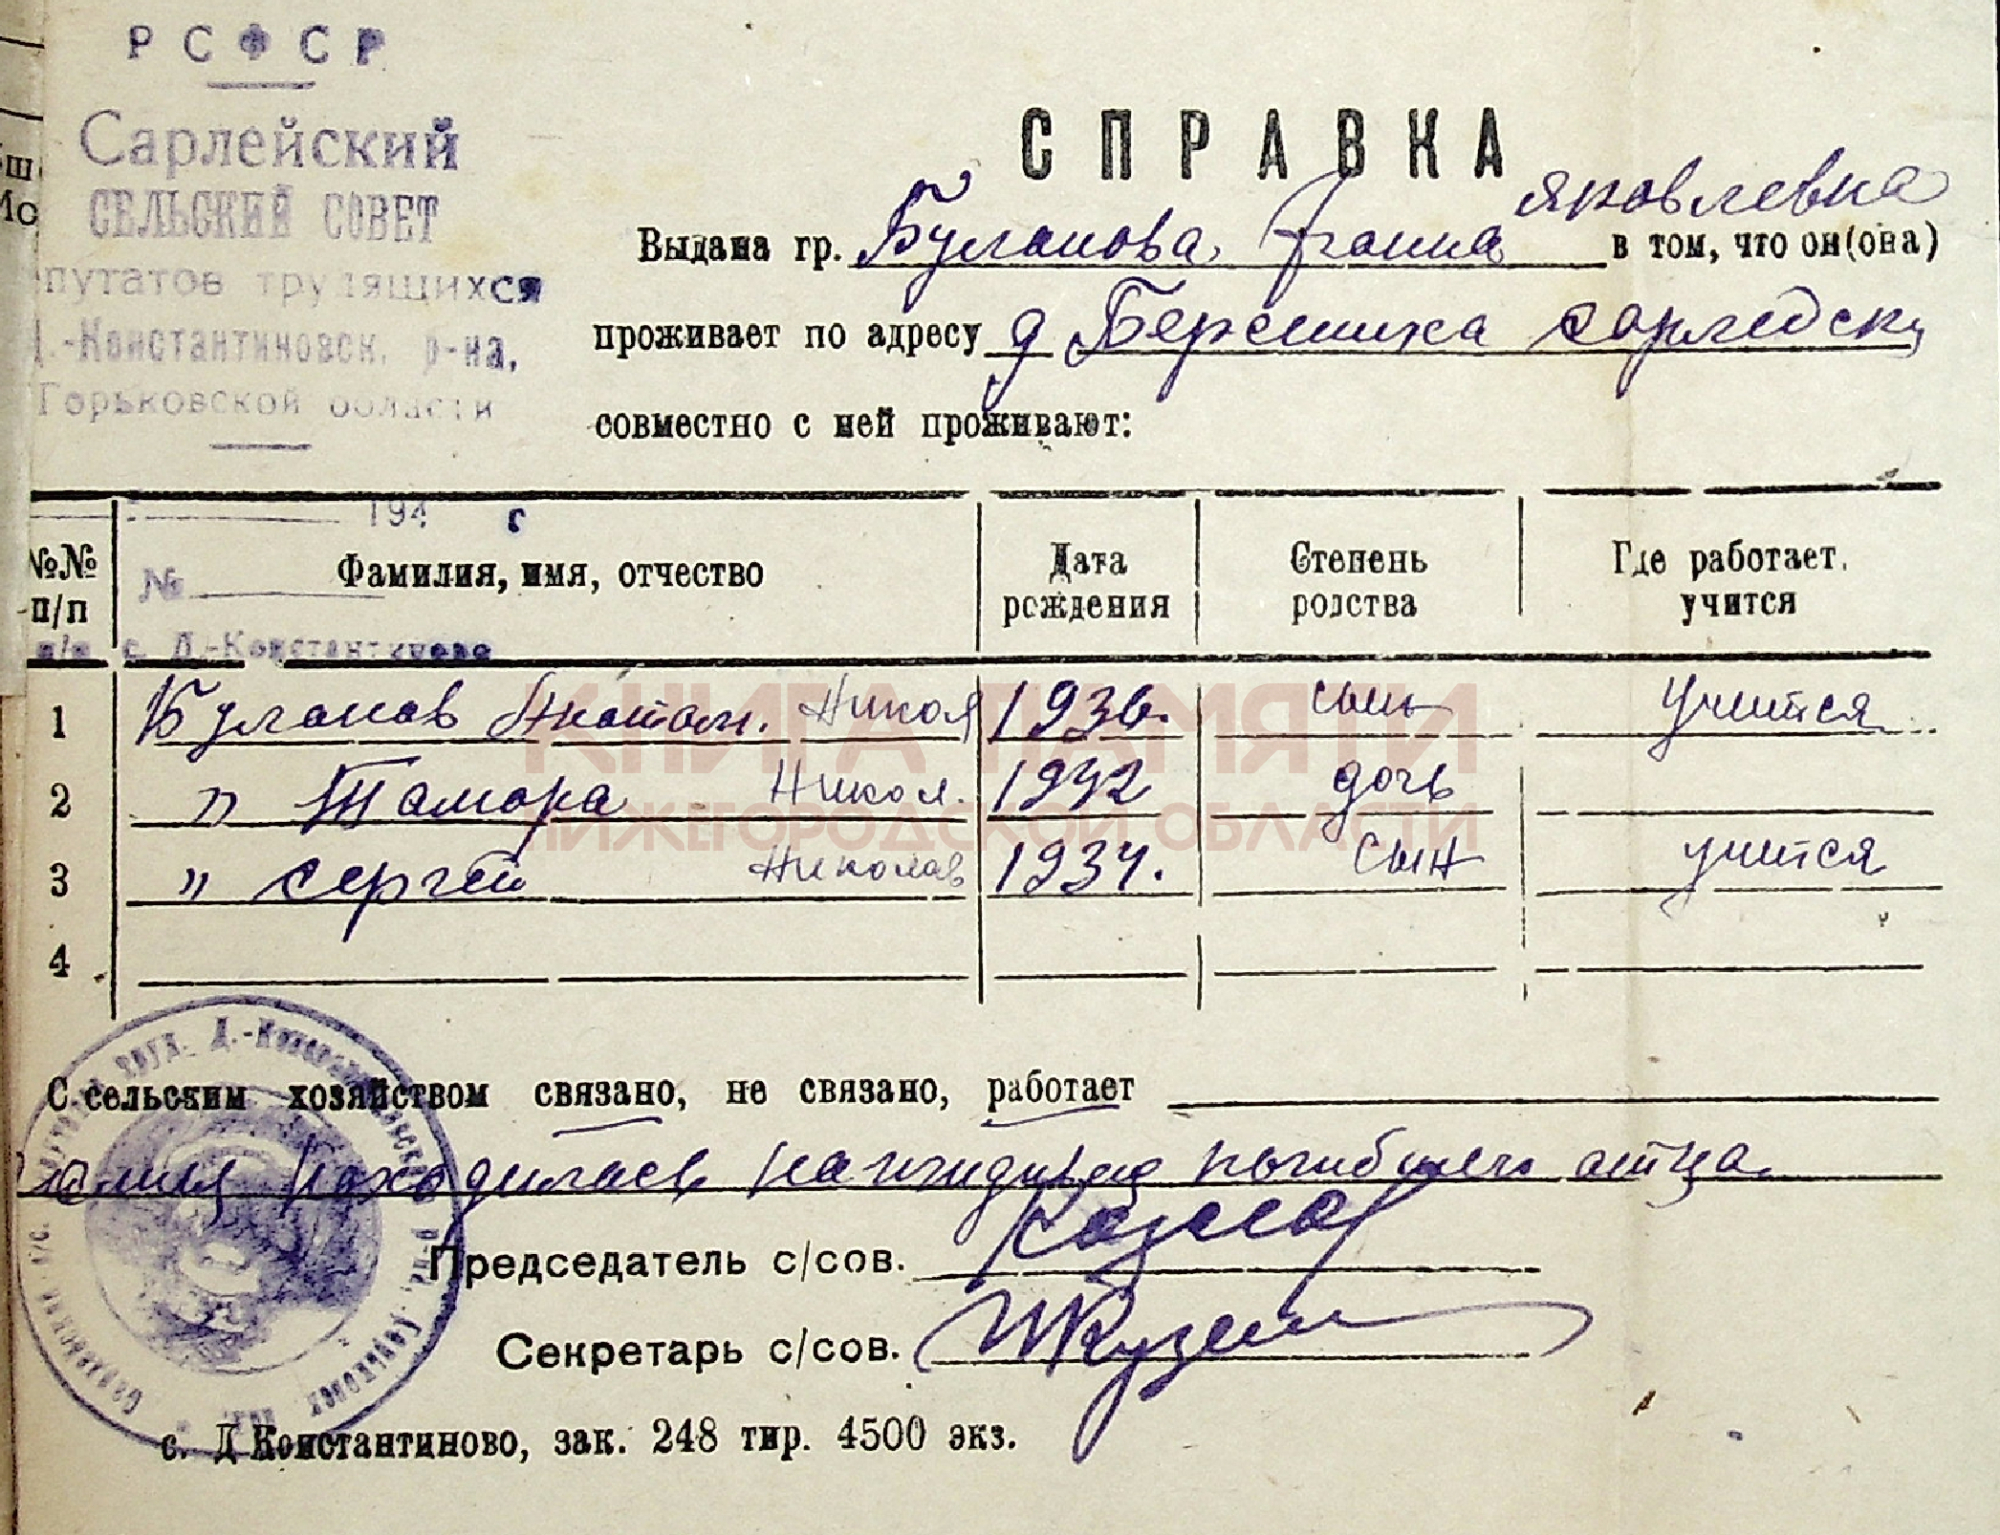 РСФСР
Сарлейский
СЕЛЬСКИЙ СОВЕТ
путатов трудящихся
Д.-Константиновск. р-на,
Горьковской области
194 г
№
с. Д.-Константиново
СПРАВКА
Яковлевна
Выдана гр. Буланова, в том, что он(она)
проживает по адресу д Сарлейск
совместно с ней проживают:
№№ п/п Фамилия, имя, отчество Дата рождения Степень родства Где работает, учится
1 Буланов Анатол. Никол 1936. сын учится
2 " Тамара Никол. 1942 дочь
3 " Сергей Николав 1934. сын учится
4
КНИГА ПАМЯТИ
НИЖЕГОРОДСКОЙ ОБЛАСТИ
С сельским хозяйством связано, не связано, работает
находилась на погибшего отца.
Председатель с/сов.
Секретарь с/сов.
с. Д Константиново, зак. 248 тир. 4500 экз.